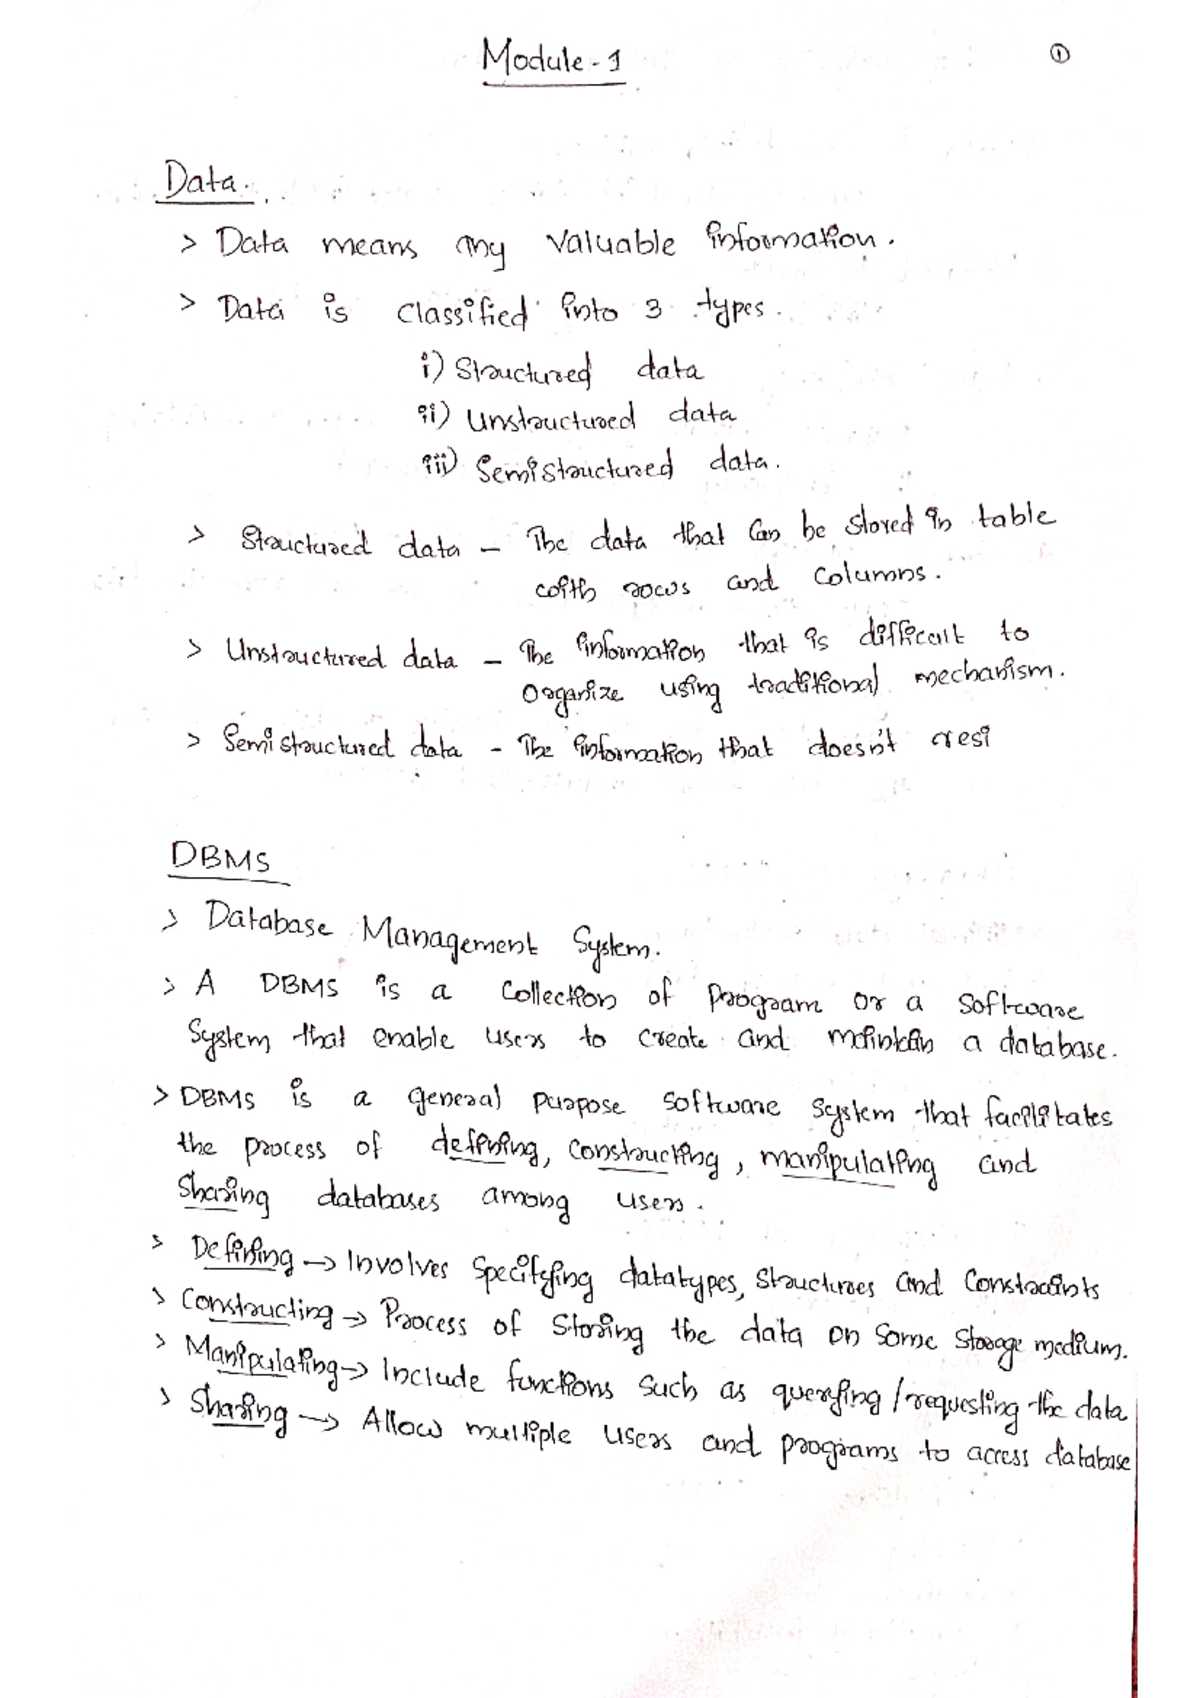 Module - 1
①
Data.
> Data means any Valuable information.
> Data is Classified into 3 types.
i) Structured data
ii) Unstructured data
iii) Semistructured data.
> Structured data - The data that can be stored in table
with rows and Columns.
> Unstructured data - The information that is difficult to
Organize using traditional mechanism.
> Semistructured data - The information that doesn't resi
DBMS
> Database Management System.
> A DBMS is a Collection of program or a Software
System that enable users to create and maintain a database.
> DBMS is a general purpose software system that facilitates
the process of defining, Constructing, manipulating and
Sharing databases among users.
> Defining → Involves Specifying datatypes, Structures and Constraints
> Constructing → Process of Storing the data on Some Storage medium.
> Manipulating → Include functions Such as querying / requesting the data
> Sharing → Allow multiple Users and programs to access database